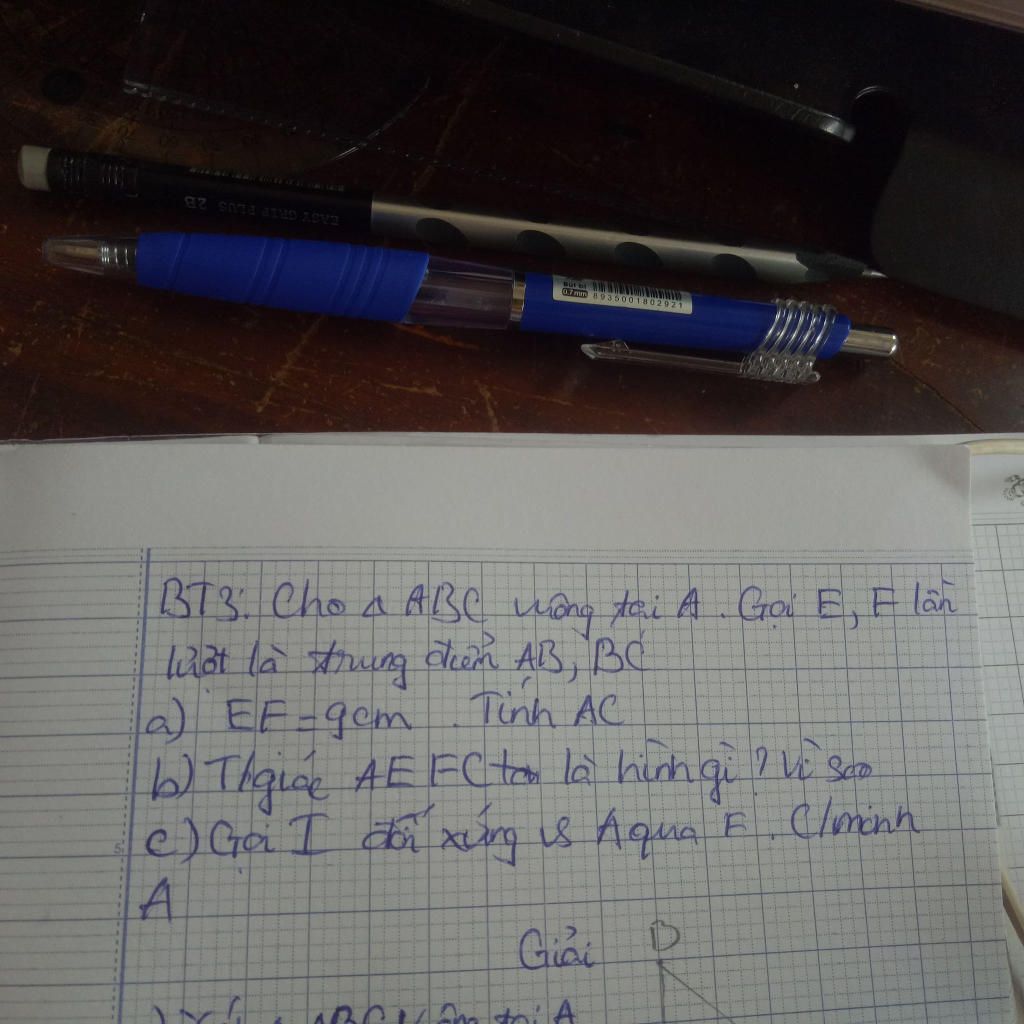 EASY GRIP PLUS 2B
Bút bi
0.7mm
8935001802921
BT3: Cho Δ ABC vuông tại A. Gọi E, F lần
lượt là trung điểm AB, BC
a) EF = 9cm. Tính AC
b) T/giác AEFC là hình gì? Vì sao
c) Gọi I đối xứng vs A qua F. C/minh
A
5
Giải
B
ABC vuông tại A